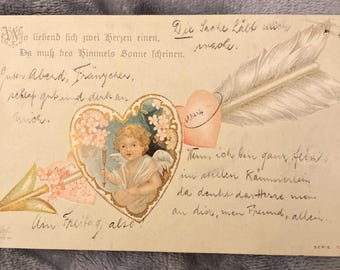 Wo liebend sich zwei Herzen einen,
Da muß des Himmels Sonne scheinen.
Die Sache läßt mich
Guten Abend,
schlaf gut und denk an
mich.
Wenn, ich bin ganz
im stillen Kämmerlein
da denkt das Herze
an dir, mein Freund, allein.
Am Freitag, also!
SERIE